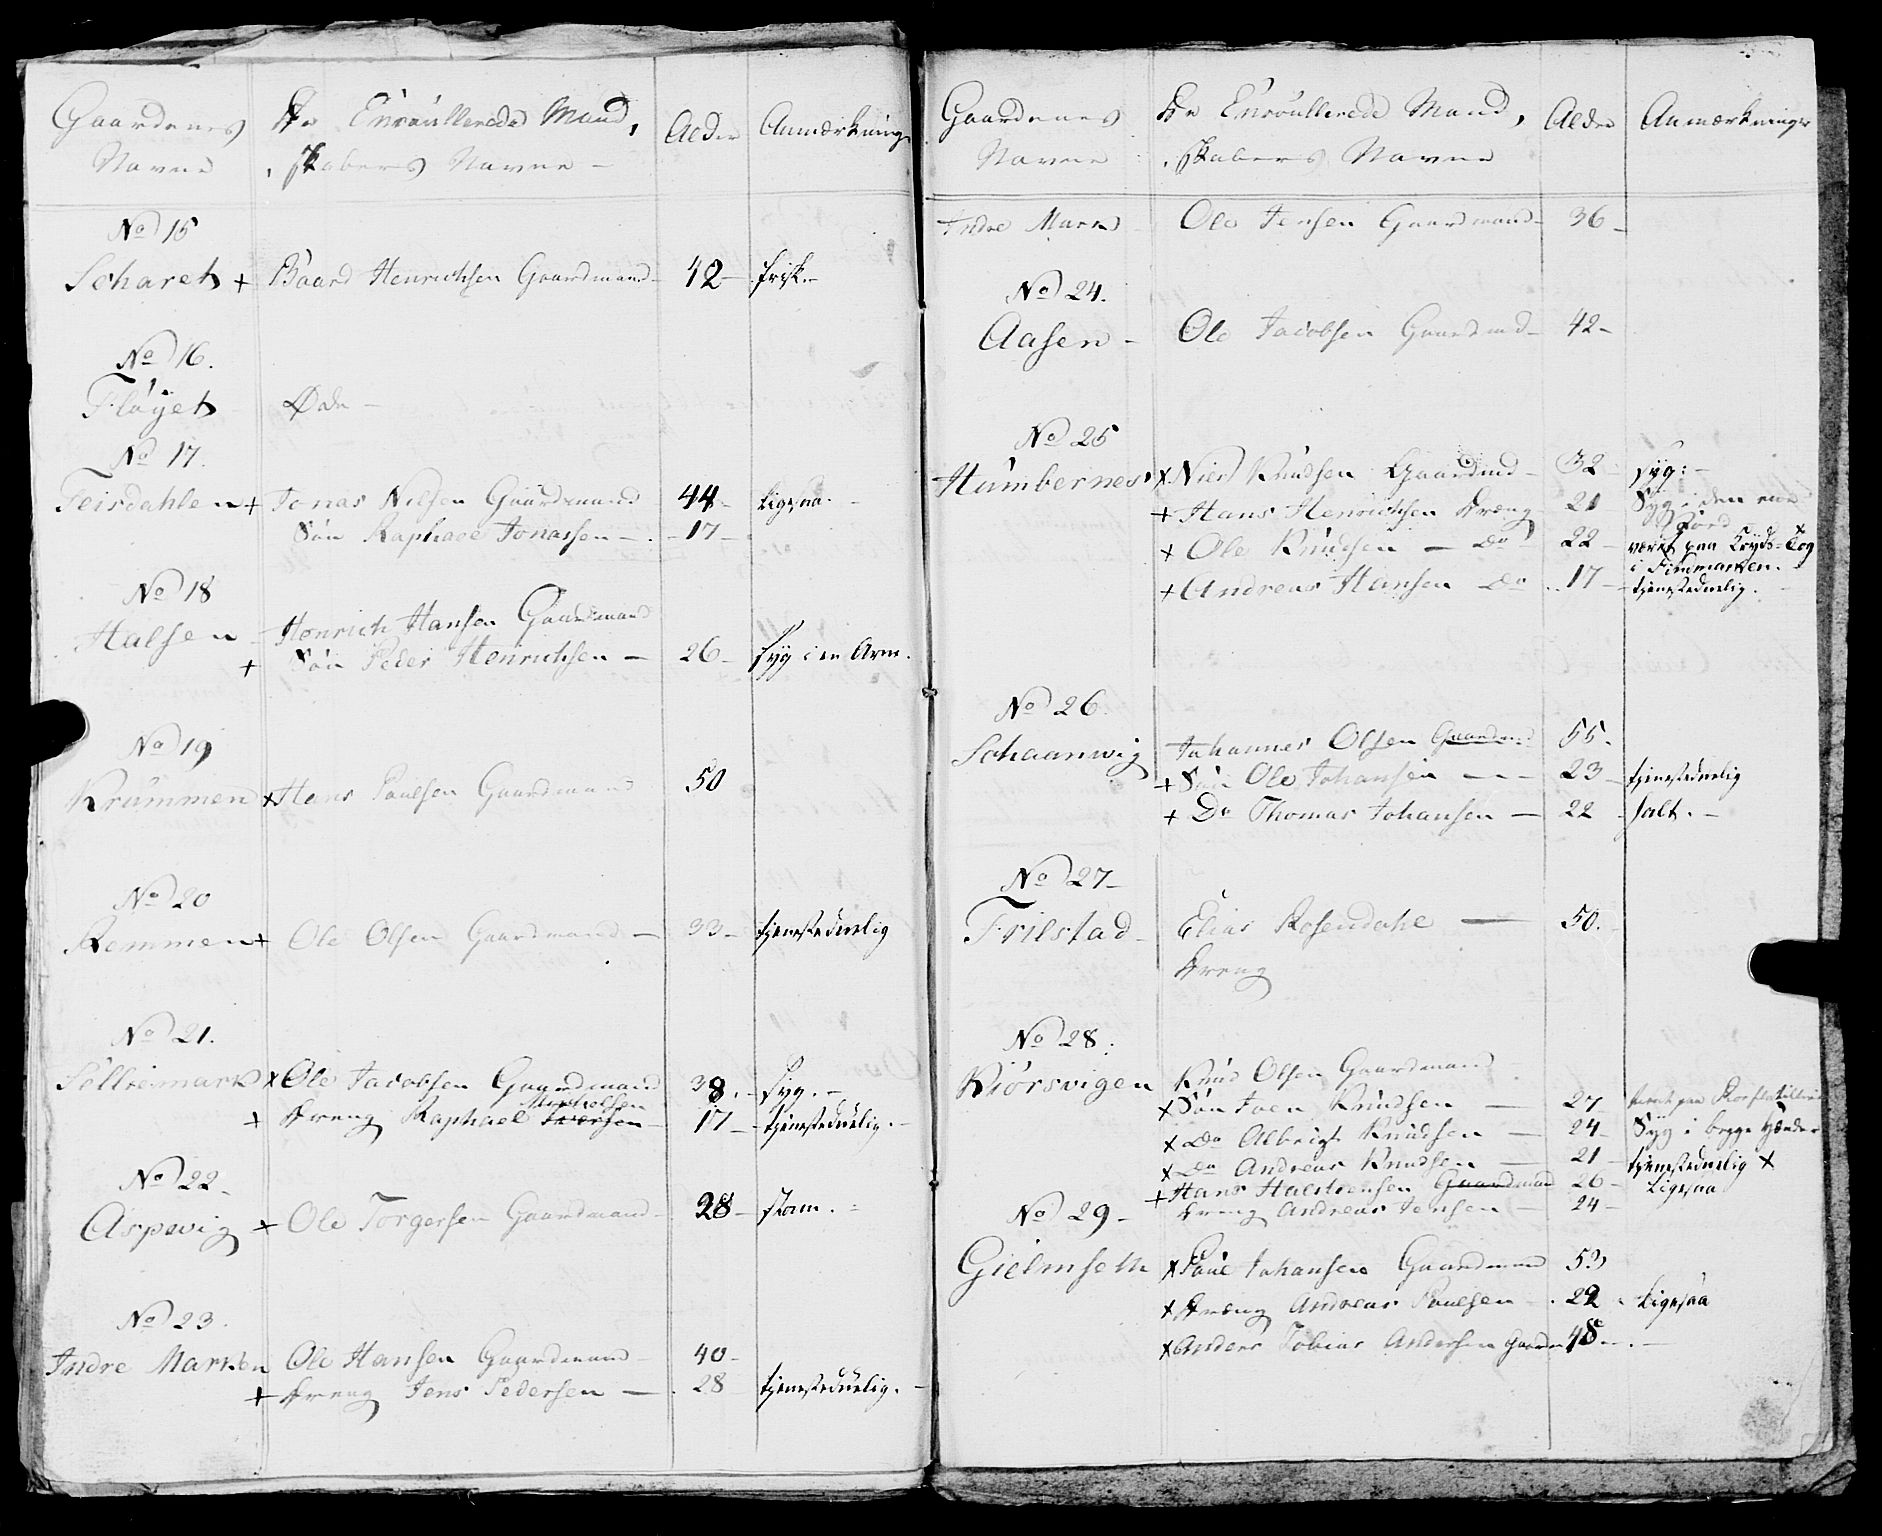 Gaardenes Navne | De Enroullerede Mand, skabers Navne | Alder | Anmærkning
No 15
Scharet + Baard Henrichsen Gaardmand 42 – frisk –
No 16.
Fløÿet Øde –
No 17.
Feisdahlen + Jonas Nilsen Gaardmand 44 – ligesaa. –
Søn Raphael Jonassen – 17 –
No 18
Halsen Henrich Hansen Gaardmand
+ Søn Peder Henrichsen – 26 – syg i en Arm.
No 19
Krummen x Hans Poulsen Gaardmand 50
No 20
Remmen + Ole Olsen Gaardmand – 33 – tjenestduelig
No 21.
Sollriemark x Ole Jacobsen Gaardmand 38. – syg. –
+ Dreng Raphael Iversen 17 – tjenestduelig. –
No 22 –
Aspevig + Ole Torgersen Gaardmand – 28 –
No 23.
Indre Marken Ole Hansen Gaardmand – 40 –
+ Dreng Jens Pedersen – 28 tjenestduelig. –
Gaardenes Navne | De Enroullerede Mand, skabers Navne | Alder | Anmærkninger
Indre Mark Ole Jensen Gaardmand – 36 –
No 24.
Aasen – Ole Jacobsen Gaardmd – 42 –
No 25
Humbernes x Niels Knudsen Gaardmd – 32 – syg: –
+ Hans Henrichsen Dreng – 21 – Syg i den ene
x Ole Knudsen – Do 22 – været paa Kryds-Tog
i Finmarken.
+ Andreas Hansen Do 17 – tjenestduelig.
No 26.
Schaanwig Johannes Olsen Gaardmd 55 –
+ Søn Ole Johansen – – – 23 – tjenestduelig
+ Do Thomas Johansen – 22 – halt. –
No 27 –
Frilstad – Elias Rosendahl – 50.
Dreng
No 28.
Kiørsvigen Knud Olsen Gaardmand
x Søn Joen Knudsen – 27 – paa
x Do Albrigt Knudsen – 24 – Syg i begge Hænder
x Do Andreas Knudsen – 21 – tjenestduelig x
+ Hans Halstensen Gaardmand 26 – Ligesaa
Dreng Andreas Jensen – 24 –
No 29 –
Gielmseth x Poul Johansen Gaardmand 53
x Dreng Andreas Poulsen – 22 – Ligesaa
x Anders Tobias Andersen Gaardm 48 – –